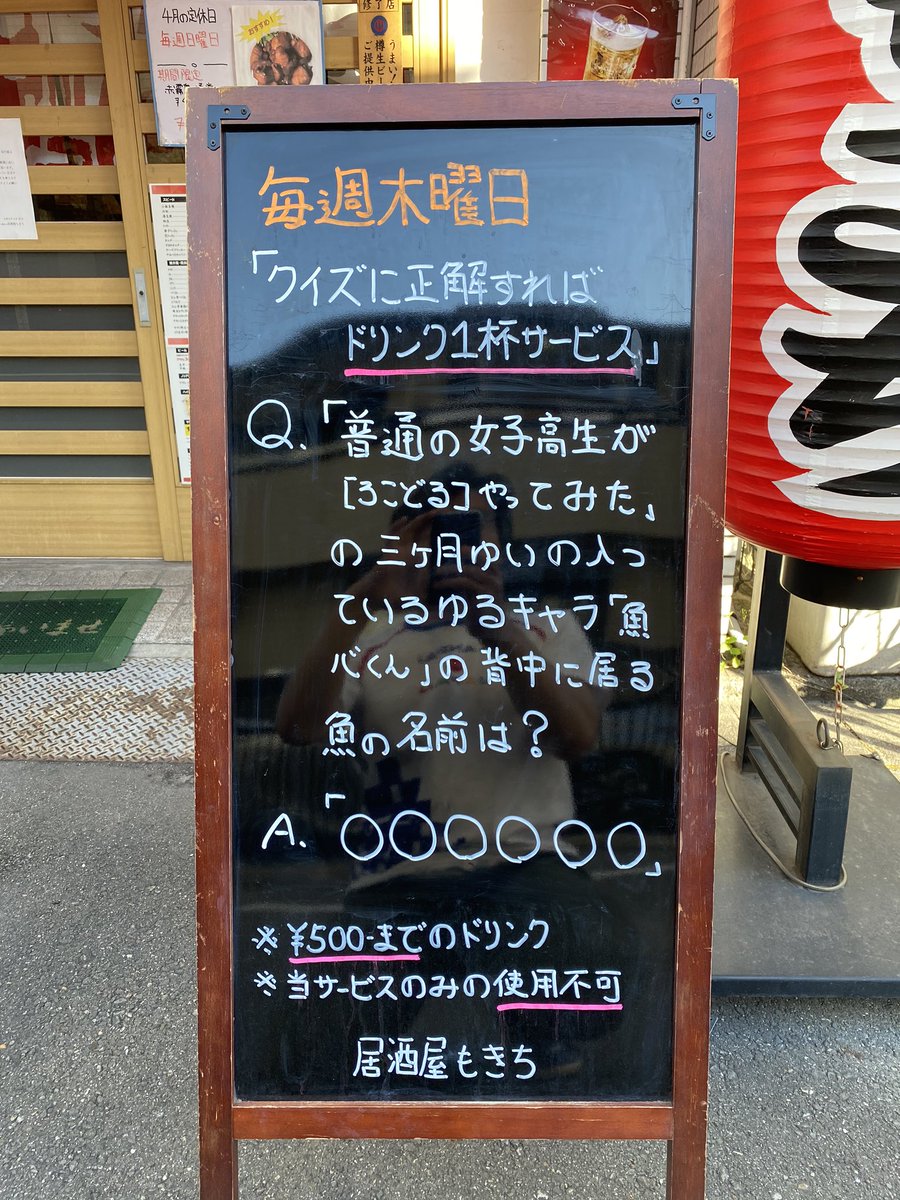 4月の定休日
毎週日曜日
期間限定
おすすめ!
うまい!
樽生ビール
ご提供中
毎週木曜日
「クイズに正解すれば
ドリンク1杯サービス」
Q.「普通の女子高生が
[ろこどる]やってみた」
の三ヶ月ゆいの入っ
ているゆるキャラ「魚
心くん」の背中に居る
魚の名前は?
A.「○○○○○○」
※¥500-までのドリンク
※当サービスのみの使用不可
居酒屋もきち